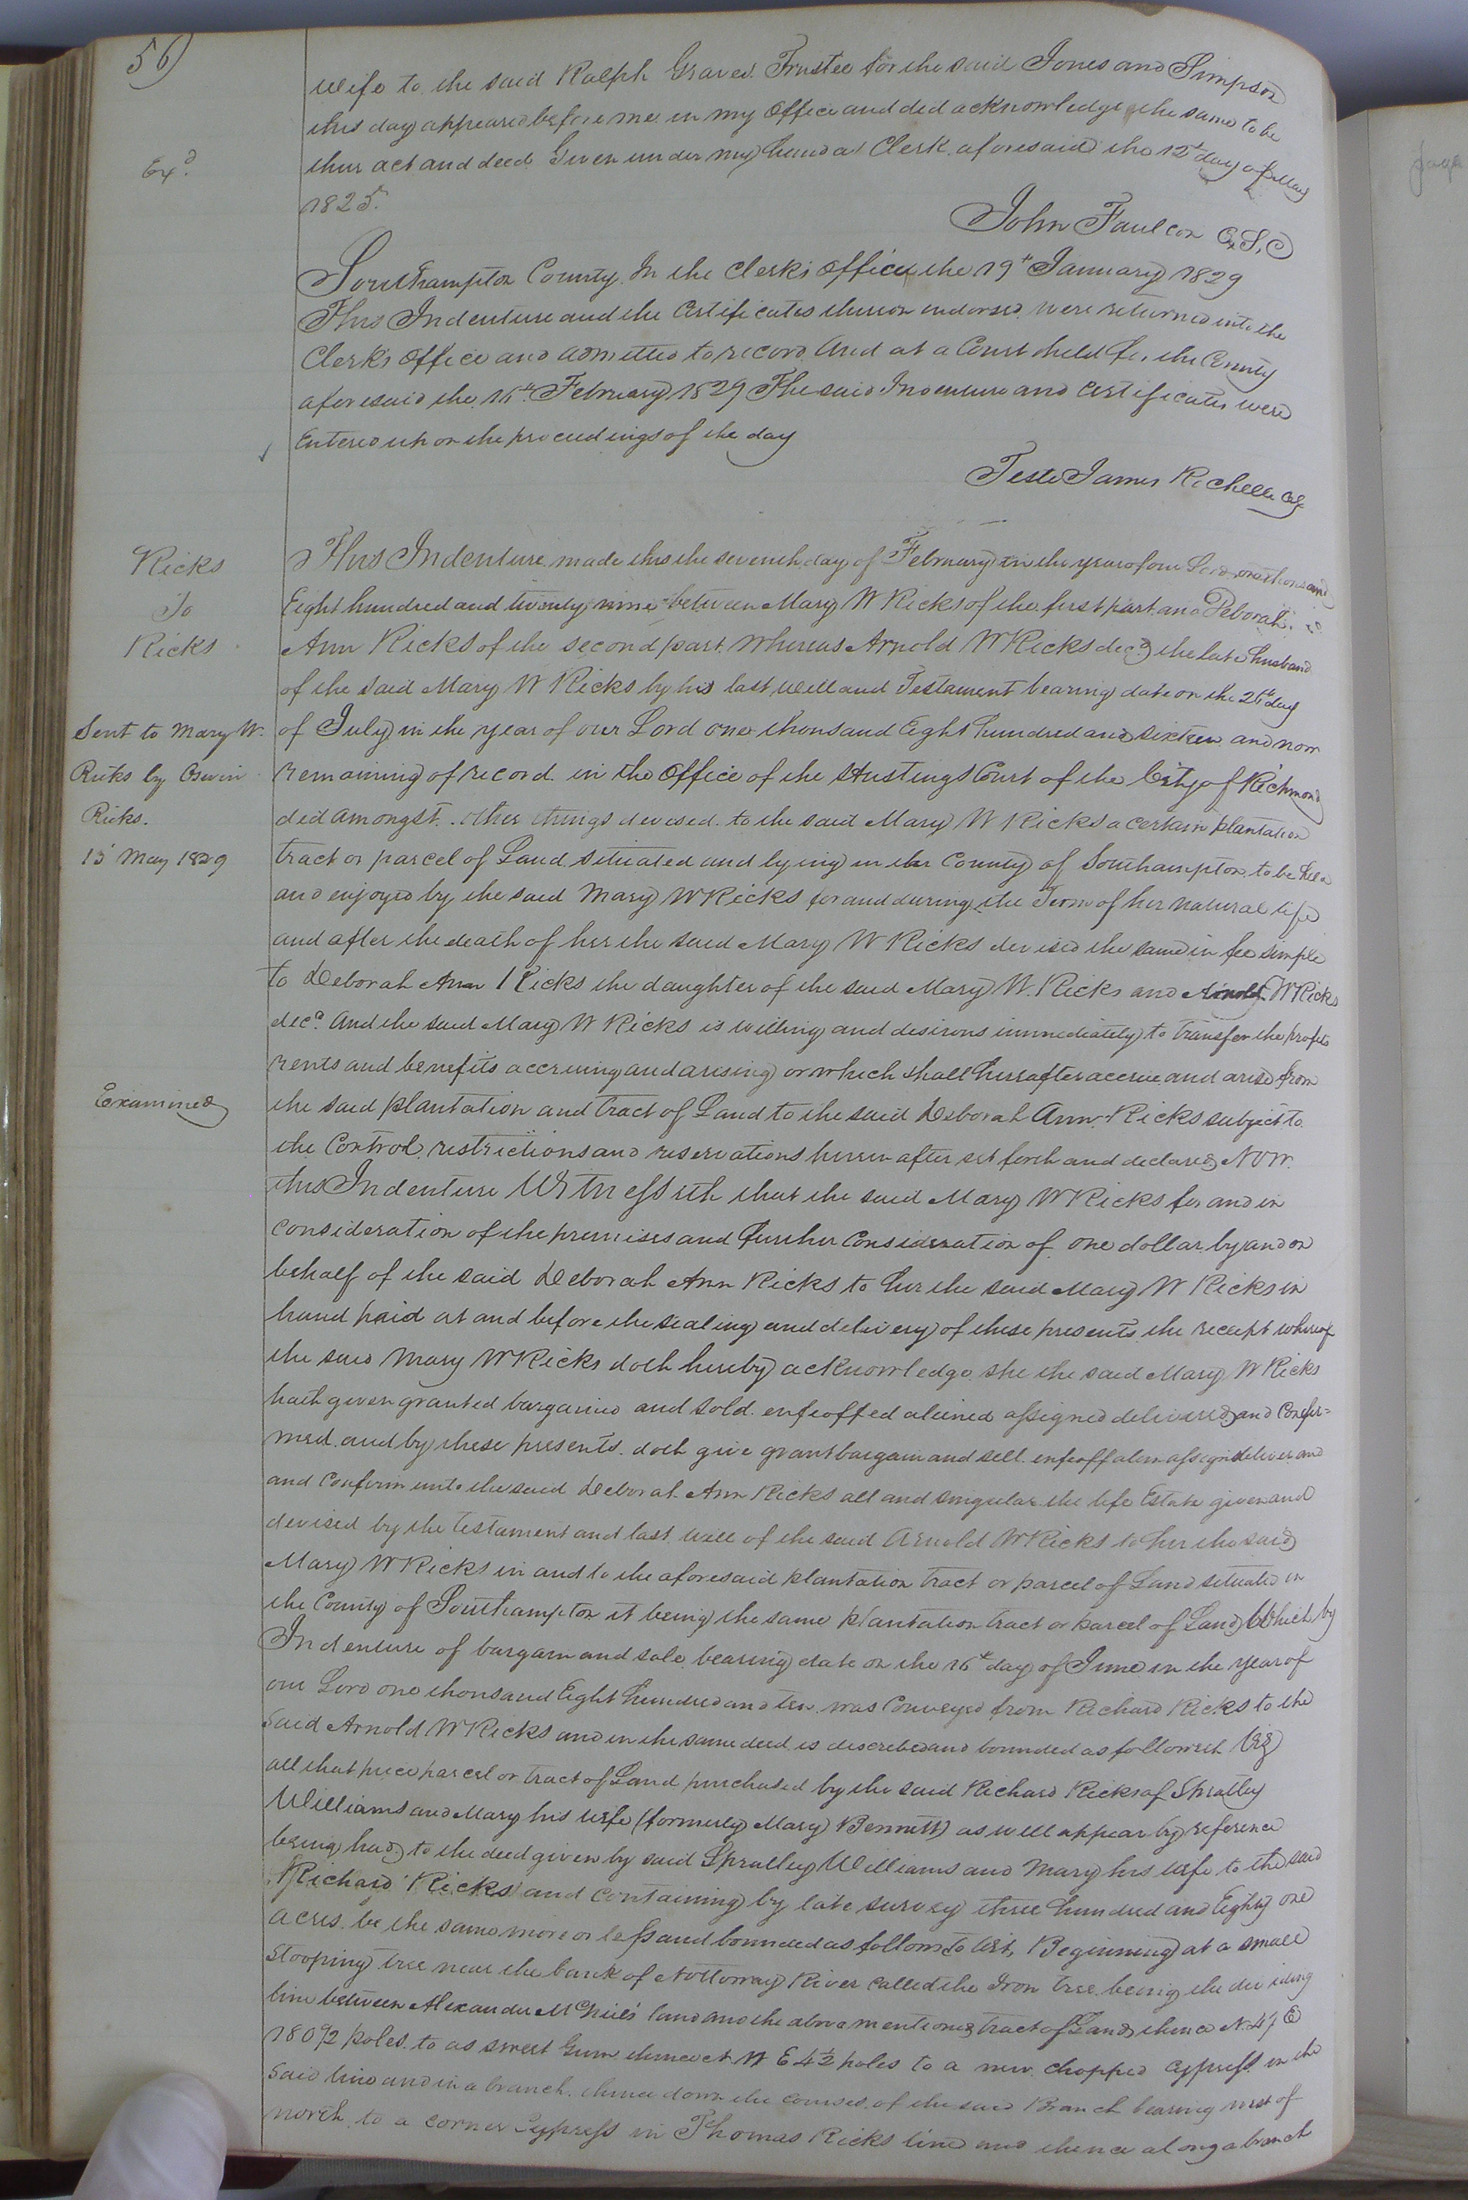 56)
wife to the said Ralph Graves Trustee for the said Jones and Simpson
this day appeared before me in my office and did acknowledge the same to be
Exd.
their act and deed Given under my hand as Clerk aforesaid the 12th day of May
1825.
John Faulcon C,S,C
Southampton County In the Clerk's office the 19th January 1829
This Indenture and the Certificates thereon endorsed were returned into the
Clerk's office and admitted to record And at a Court held for the County
aforesaid the 16th February 1829 The said Indenture and Certificates were
Entered upon the proceedings of the day
Teste James Rochelle Clk
Ricks
To
Ricks
This Indenture made this the seventh day of February in the year of our Lord one thousand
Eight hundred and twenty nine between Mary W Ricks of the first part and Deborah
Ann Ricks of the second part Whereas Arnold W Ricks decd the late husband
of the said Mary W Ricks by his last will and Testament bearing date on the 26th day
Sent to Mary W.
Ricks by Oswin
Ricks.
15 May 1829
of July in the year of our Lord one thousand Eight hundred and sixteen and now
remaining of record in the office of the Hustings Court of the City of Richmond
did amongst other things devised to the said Mary W Ricks a certain plantation
tract or parcel of Land situated and lying in the County of Southampton to be held
and enjoyed by the said Mary W Ricks for and during the Term of her natural life
and after the death of her the said Mary W Ricks devised the same in fee simple
to Deborah Ann Ricks the daughter of the said Mary W. Ricks and Arnold W Ricks
decd. And the said Mary W Ricks is willing and desirous immediately to transfer the profits
rents and benefits accruing and arising or which shall hereafter accrue and arise from
Examined
the said plantation and tract of Land to the said Deborah Ann Ricks subject to
the Control restrictions and reservations herein after set forth and declared Now
this Indenture Witnesseth that the said Mary W Ricks for and in
consideration of the premises and further Consideration of one dollar by and on
behalf of the said Deborah Ann Ricks to her the said Mary W Ricks in
hand paid at and before the sealing and delivery of these presents the receipt whereof
the said Mary W Ricks doth hereby acknowledge she the said Mary W Ricks
hath given granted bargained and sold enfeoffed aliened assigned delivered and Confir=
med and by these presents doth give grant bargain and sell enfeoff alien assign deliver and
and Confirm unto the said Deborah Ann Ricks all and singular the life Estate given and
devised by the testament and last will of the said Arnold W Ricks to her the said
Mary W Ricks in and to the aforesaid plantation tract or parcel of Land situated in
the County of Southampton it being the same plantation tract or parcel of Land Which by
Indenture of bargain and sale bearing date on the 16th day of June in the year of
our Lord one thousand Eight hundred and ten was Conveyed from Richard Ricks to the
said Arnold W Ricks and in the same deed is described and bounded as followeth Viz
all that piece parcel or tract of Land purchased by the said Richard Ricks of Spratley
Williams and Mary his wife (formerly Mary Bennett) as will appear by reference
being had to the deed given by said Spratley Williams and Mary his wife to the said
Richard Ricks and containing by late survey three hundred and Eighty one
acres be the same more or less and bounded as follows to wit, Beginning at a small
stooping tree near the bank of Nottoway River called the Iron tree being the dividing
line between Alexander McNeil's land and the above mentioned tract of Land thence N. 47 E
180 1/2 poles to as sweet Gum thence N E 42 poles to a new chopped cypress in the
said line and in a branch thence down the courses of the said Branch bearing west of
north to a corner Cypress in Thomas Ricks line and thence along a branch